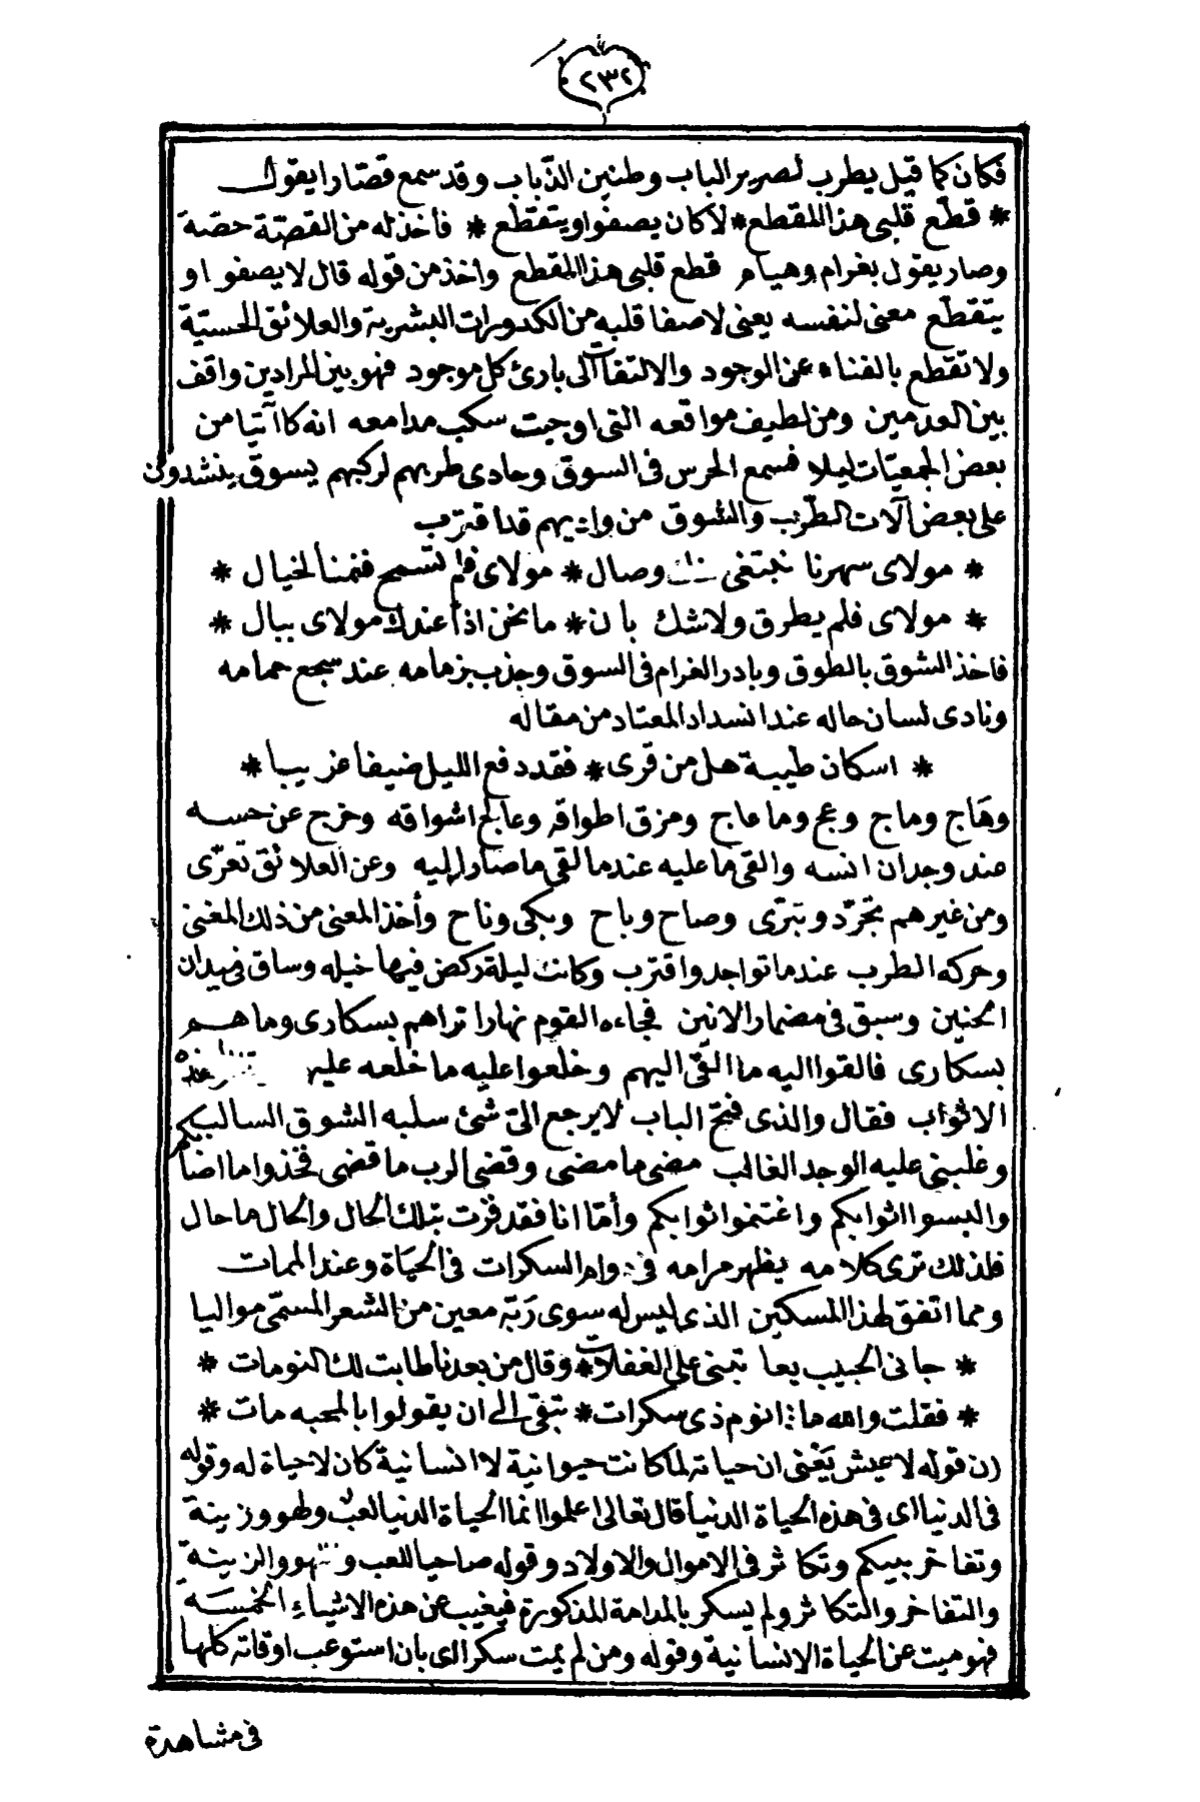 ٢٣٢
فكان كما قيل يطرب لصرير الباب وطنين الذباب وقد سمع قصارا يقول
* قطّع قلبى هذا المقطع * لا كان يصفوا ويتقطّع * فأخذ له من القصّة حصّة
وصار يقول بغرام وهيام قطع قلبى هذا المقطع وأخذ من قوله قال لا يصفو او
يتقطّع معنى لنفسه يعنى لا صفا قلبه من الكدورات البشرية والعلائق الحسّيّة
ولا تقطع بالفناء عن الوجود والالتفات الى بارئ كل موجود فهو بين المرادين واقف
بين العدمين ومن لطيف مواقعه التى اوجبت سكب مدامعه انه كا آتيا من
بعض الجمعيّات ليلا فسمع الحرس فى السوق وحادى طربهم لركبهم يسوق ينشدون
على بعض آلات الطّرب والشوق من واديهم قد اقترب
* مولاى سهرنا نبتغى منك وصال * مولاى فلم تسمح فنمنا لخيال *
* مولاى فلم يطرق ولا شك بان * ما نحن اذا عندك مولاى ببال *
فاخذ الشوق بالطوق وبادر الغرام فى السوق وجذب بزمامه عند سجع حمامه
ونادى لسان حاله عند انسداد المعتاد من مقاله
* اسكان طيبة هل من قرى * فقد دفع الليل ضيفا غريبا *
وهَاج وماج وعج وما عاج ومزق اطواقه وعالج اشواقه وخرج عن حسه
عند وجدان انسه والقى ما عليه عندما لقى ما صار اليه وعن العلائق تعرّى
ومن غيرهم تجرّد وتبرّى وصاح وباح وبكى وناح وأخذ المعنى من ذلك المغنى
وحركه الطرب عندما تواجد واقترب وكانت ليلة ركض فيها خيله وساق فى ميدان
الحنين وسبق فى مضمار الانين فجاءه القوم نهارا تراهم بسكارى وما هم
بسكارى فالقوا اليه ما القى اليهم وخلعوا عليه ما خلعه عليه
الاثواب فقال والذى فتح الباب لا يرجع الىّ شئ سلبه الشوق السالب
وغلبنى عليه الوجد الغالب مضى ما مضى وقضى الرب ما قضى فخذوا ما اضابكم
والبسوا اثوابكم واغتنموا ثوابكم وأمّا انا فقد فزت بتلك الحال والحال ما حال
فلذلك ترى كلامه يظهر مرامه فى دوام السكرات فى الحيَاة وعند الممات
ومما اتفق لهذا المسكين الذى ليس له سوى رَبّه معين من الشعر المسمّى مواليا
* جانى الحبيب يعاتبنى على الغفلات * وقال من بعدنا طابت لك النومات *
* فقلت والله ما انوم ذى سكرات * تبقى الى ان يقولوا بالمحبه مات *
ان قوله لا عيش يَعْنى ان حياته لما كانت حيوانية لا انسانية كان لا حياة له وقوله
فى الدنيا اى فى هذه الحياة الدنيا قال تعالى اعلموا انما الحياة الدنيا لعب ولهو وزينة
وتفاخر بينكم وتكاثر فى الاموال والاولاد وقوله صاحيا للعب واللهو والزينة
والتفاخر والتكاثر ولم يسكر بالمدامة المذكورة فيغيب عن هذه الاشياء الخمسَة
فهو ميت عن الحياة الانسانية وقوله ومن لم يمت سكرا اى بان استوعب اوقاته كلها
فى مشاهدة